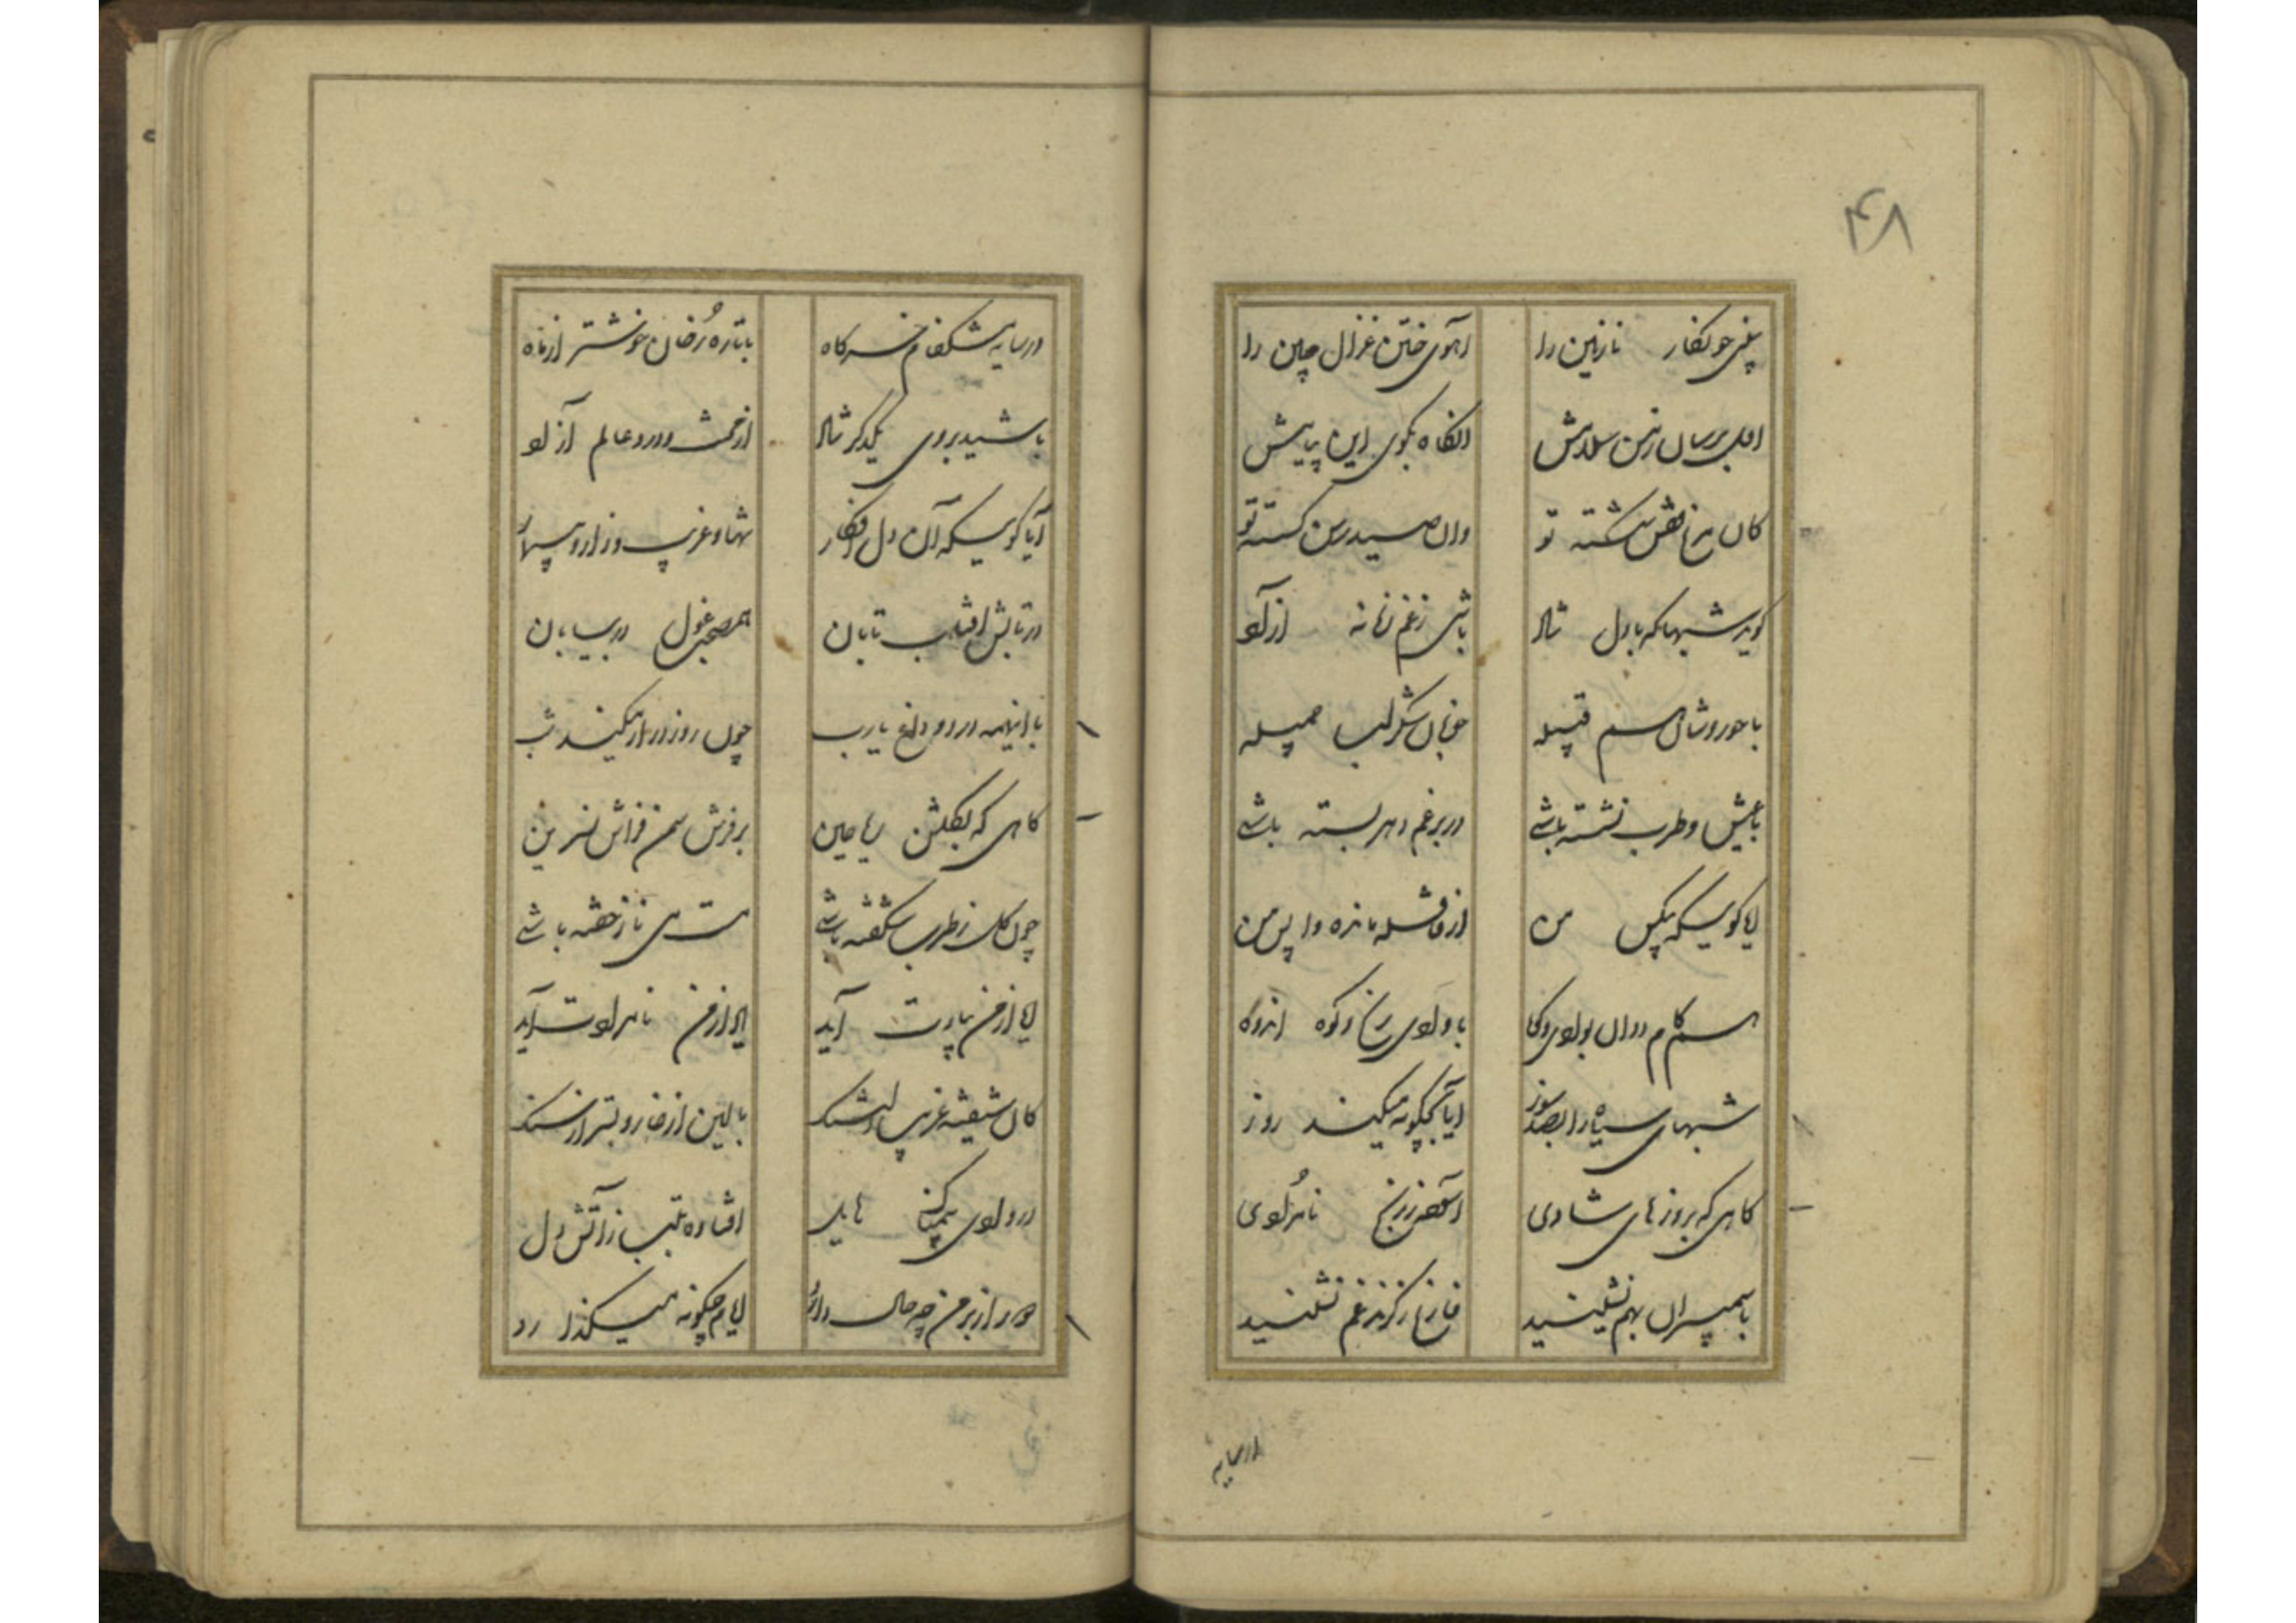 ۴۸
نازنین را آهوی ختن غزال چین را
اول برسان ز من سلامش آنگاه بگوی این پیامش
کان مرغ قفس شکسته تو وان صید رسن گسسته تو
گوید شبها که با دل شاد باشی ز غم زمانه آزاد
با حوروشان هم قبیله خوبان شکر لب جمیله
با عیش و طرب نشسته باشی در بر غم دهر بسته باشی
آیا گویی که بیکس من از قافله مانده واپس من
همگام ددان بوادی و کوه با وادی رنج و کوه اندوه
شبهای سیاه را بصد سوز آیا بچگونه میکند روز
گاهی که بروزهای شادی آسوده ز رنج نامرادی
با سیمبران بهم نشینید فارغ ز گزند غم نشینید
در سایه
در سایه خرگاه با تازه رخان خوشتر از ماه
باشید بروی یکدگر شاد از محنت و درد عالم آزاد
آیا گویی که آن دل افکار تنها و غریب و زار و بیمار
در تابش آفتاب تابان همصحبت غول در بیابان
با اینهمه درد و داغ یارب چون روز دراز میکند شب
گاهی که بگلشن ریاحین بر فرش سمن فراش نسرین
چون گل ز طرب شکفته باشی مست می ناز خفته باشی
آیا از من بیادت آید یاد از من نامرادت آید
کان شیفته غریب دلتنگ بالین از خار و بستر از سنگ
در وادی هایل افتاده بتب ز آتش دل
دور از بر من چه حال دارد ایام چگونه میگذارد